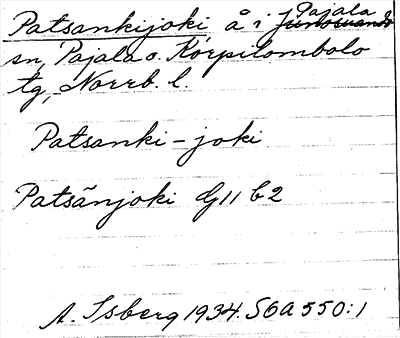 Patsankijoki å i Pajala Junosuando
sn, Pajala o. Korpilombolo
tg, Norrb. l.
Patsanki-joki
Patsānjoki G11 b2
A. Isberg 1934. SGA 550:1